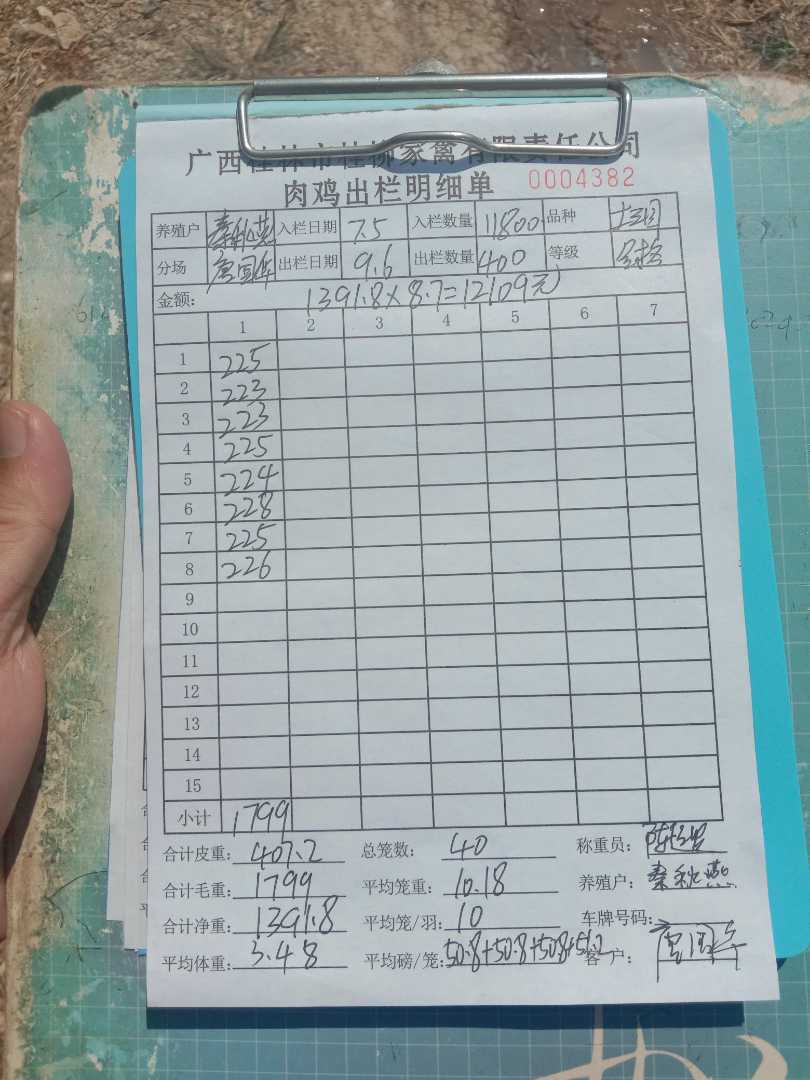 广西桂林市桂柳家禽有限责任公司
肉鸡出栏明细单 0004382
养殖户 入栏日期 7.5 入栏数量 11800 品种
分场 出栏日期 9.6 出栏数量 400 等级
金额： 1391.8×8.7=12109元
1 2 3 4 5 6 7
1 225
2 223
3 223
4 225
5 224
6 228
7 225
8 226
9
10
11
12
13
14
15
小计 1799
合计皮重： 407.2 总笼数： 40 称重员：
合计毛重： 1799 平均笼重： 10.18 养殖户：
合计净重： 1391.8 平均笼/羽： 10 车牌号码：
平均体重： 3.48 平均磅/笼： 50.8+50.8+50.8+51.2 客户：